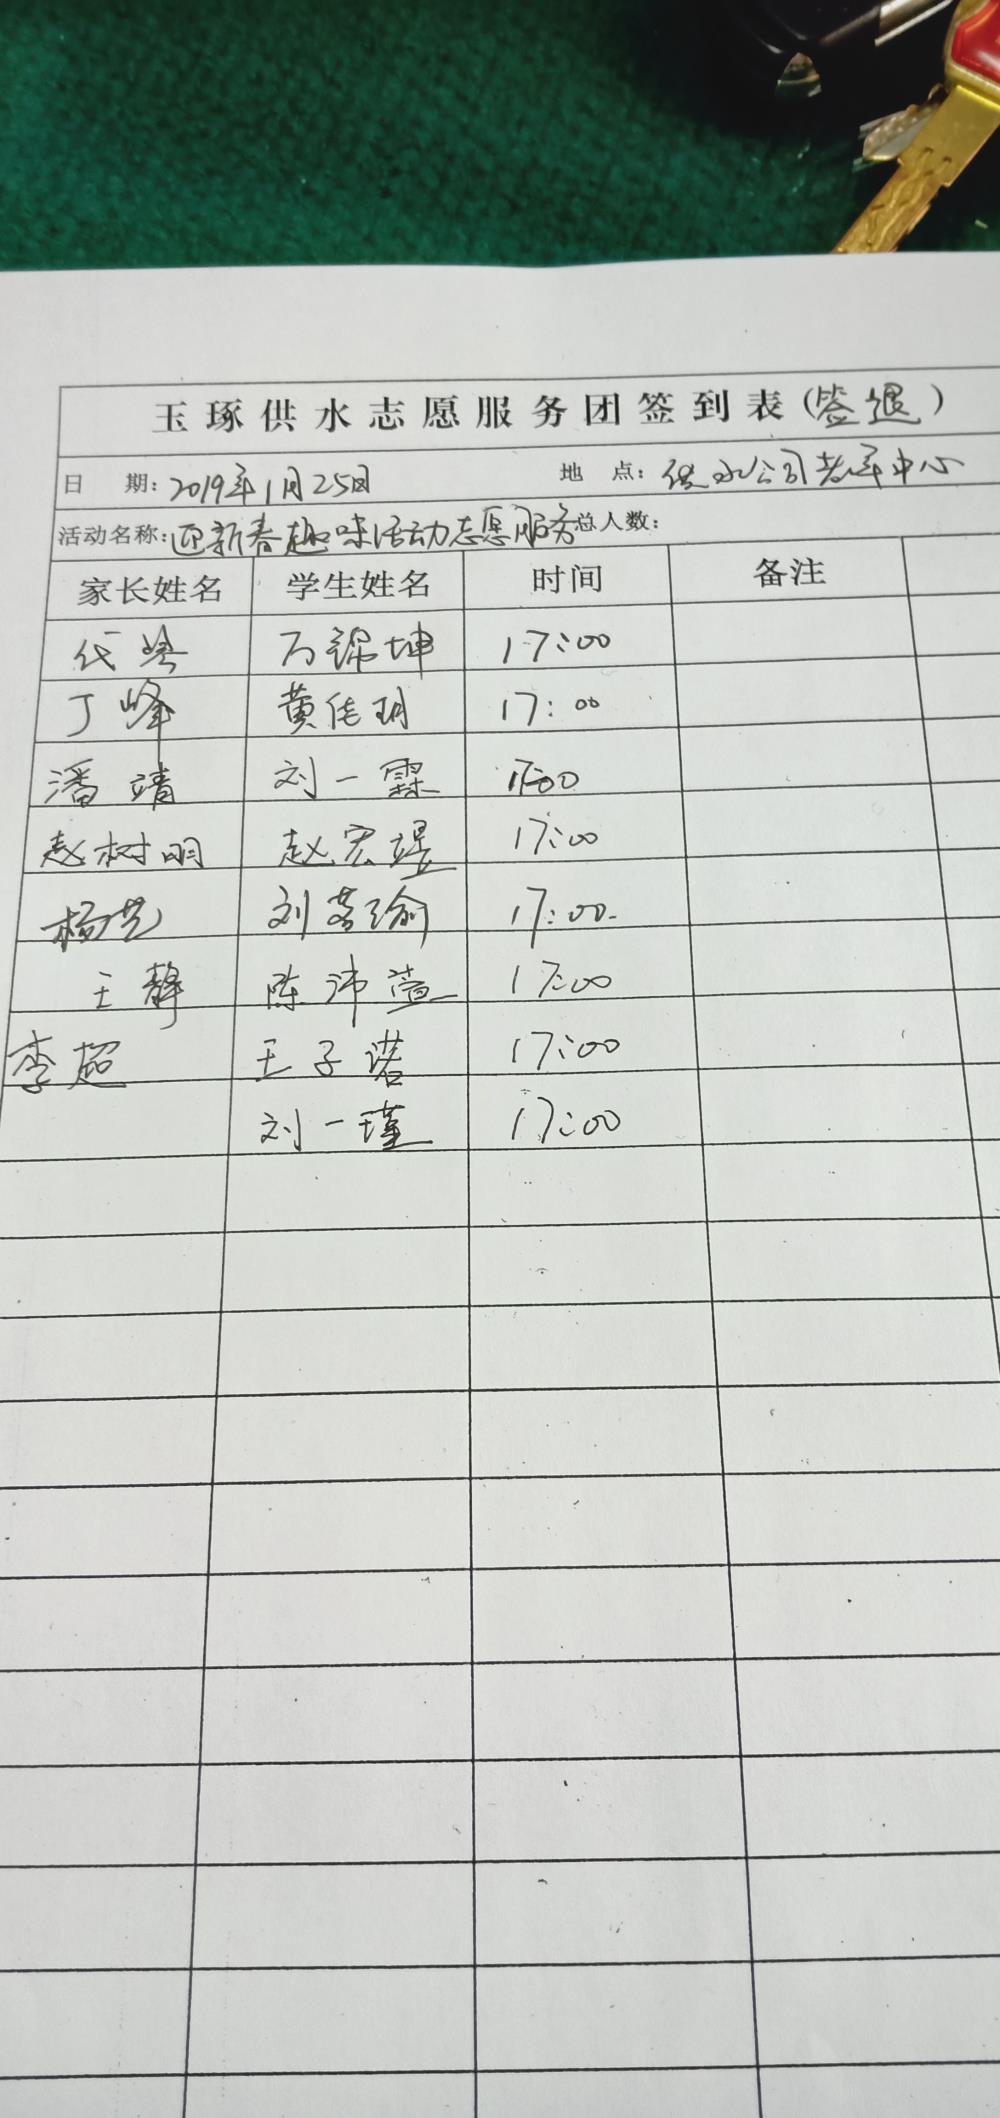 玉琢供水志愿服务团签到表(签退)
日 期:2019年1月25日 地 点:供水公司老年中心
活动名称:迎新春趣味活动志愿服务总人数:
家长姓名 学生姓名 时间 备注
代 万锦坤 17:00
丁峰 黄佳玥 17:00
潘靖 刘一霖 17:00
赵树明 赵宏煜 17:00
杨艺 刘若瑜 17:00
王静 陈沛萱 17:00
李超 王子诺 17:00
刘一瑾 17:00